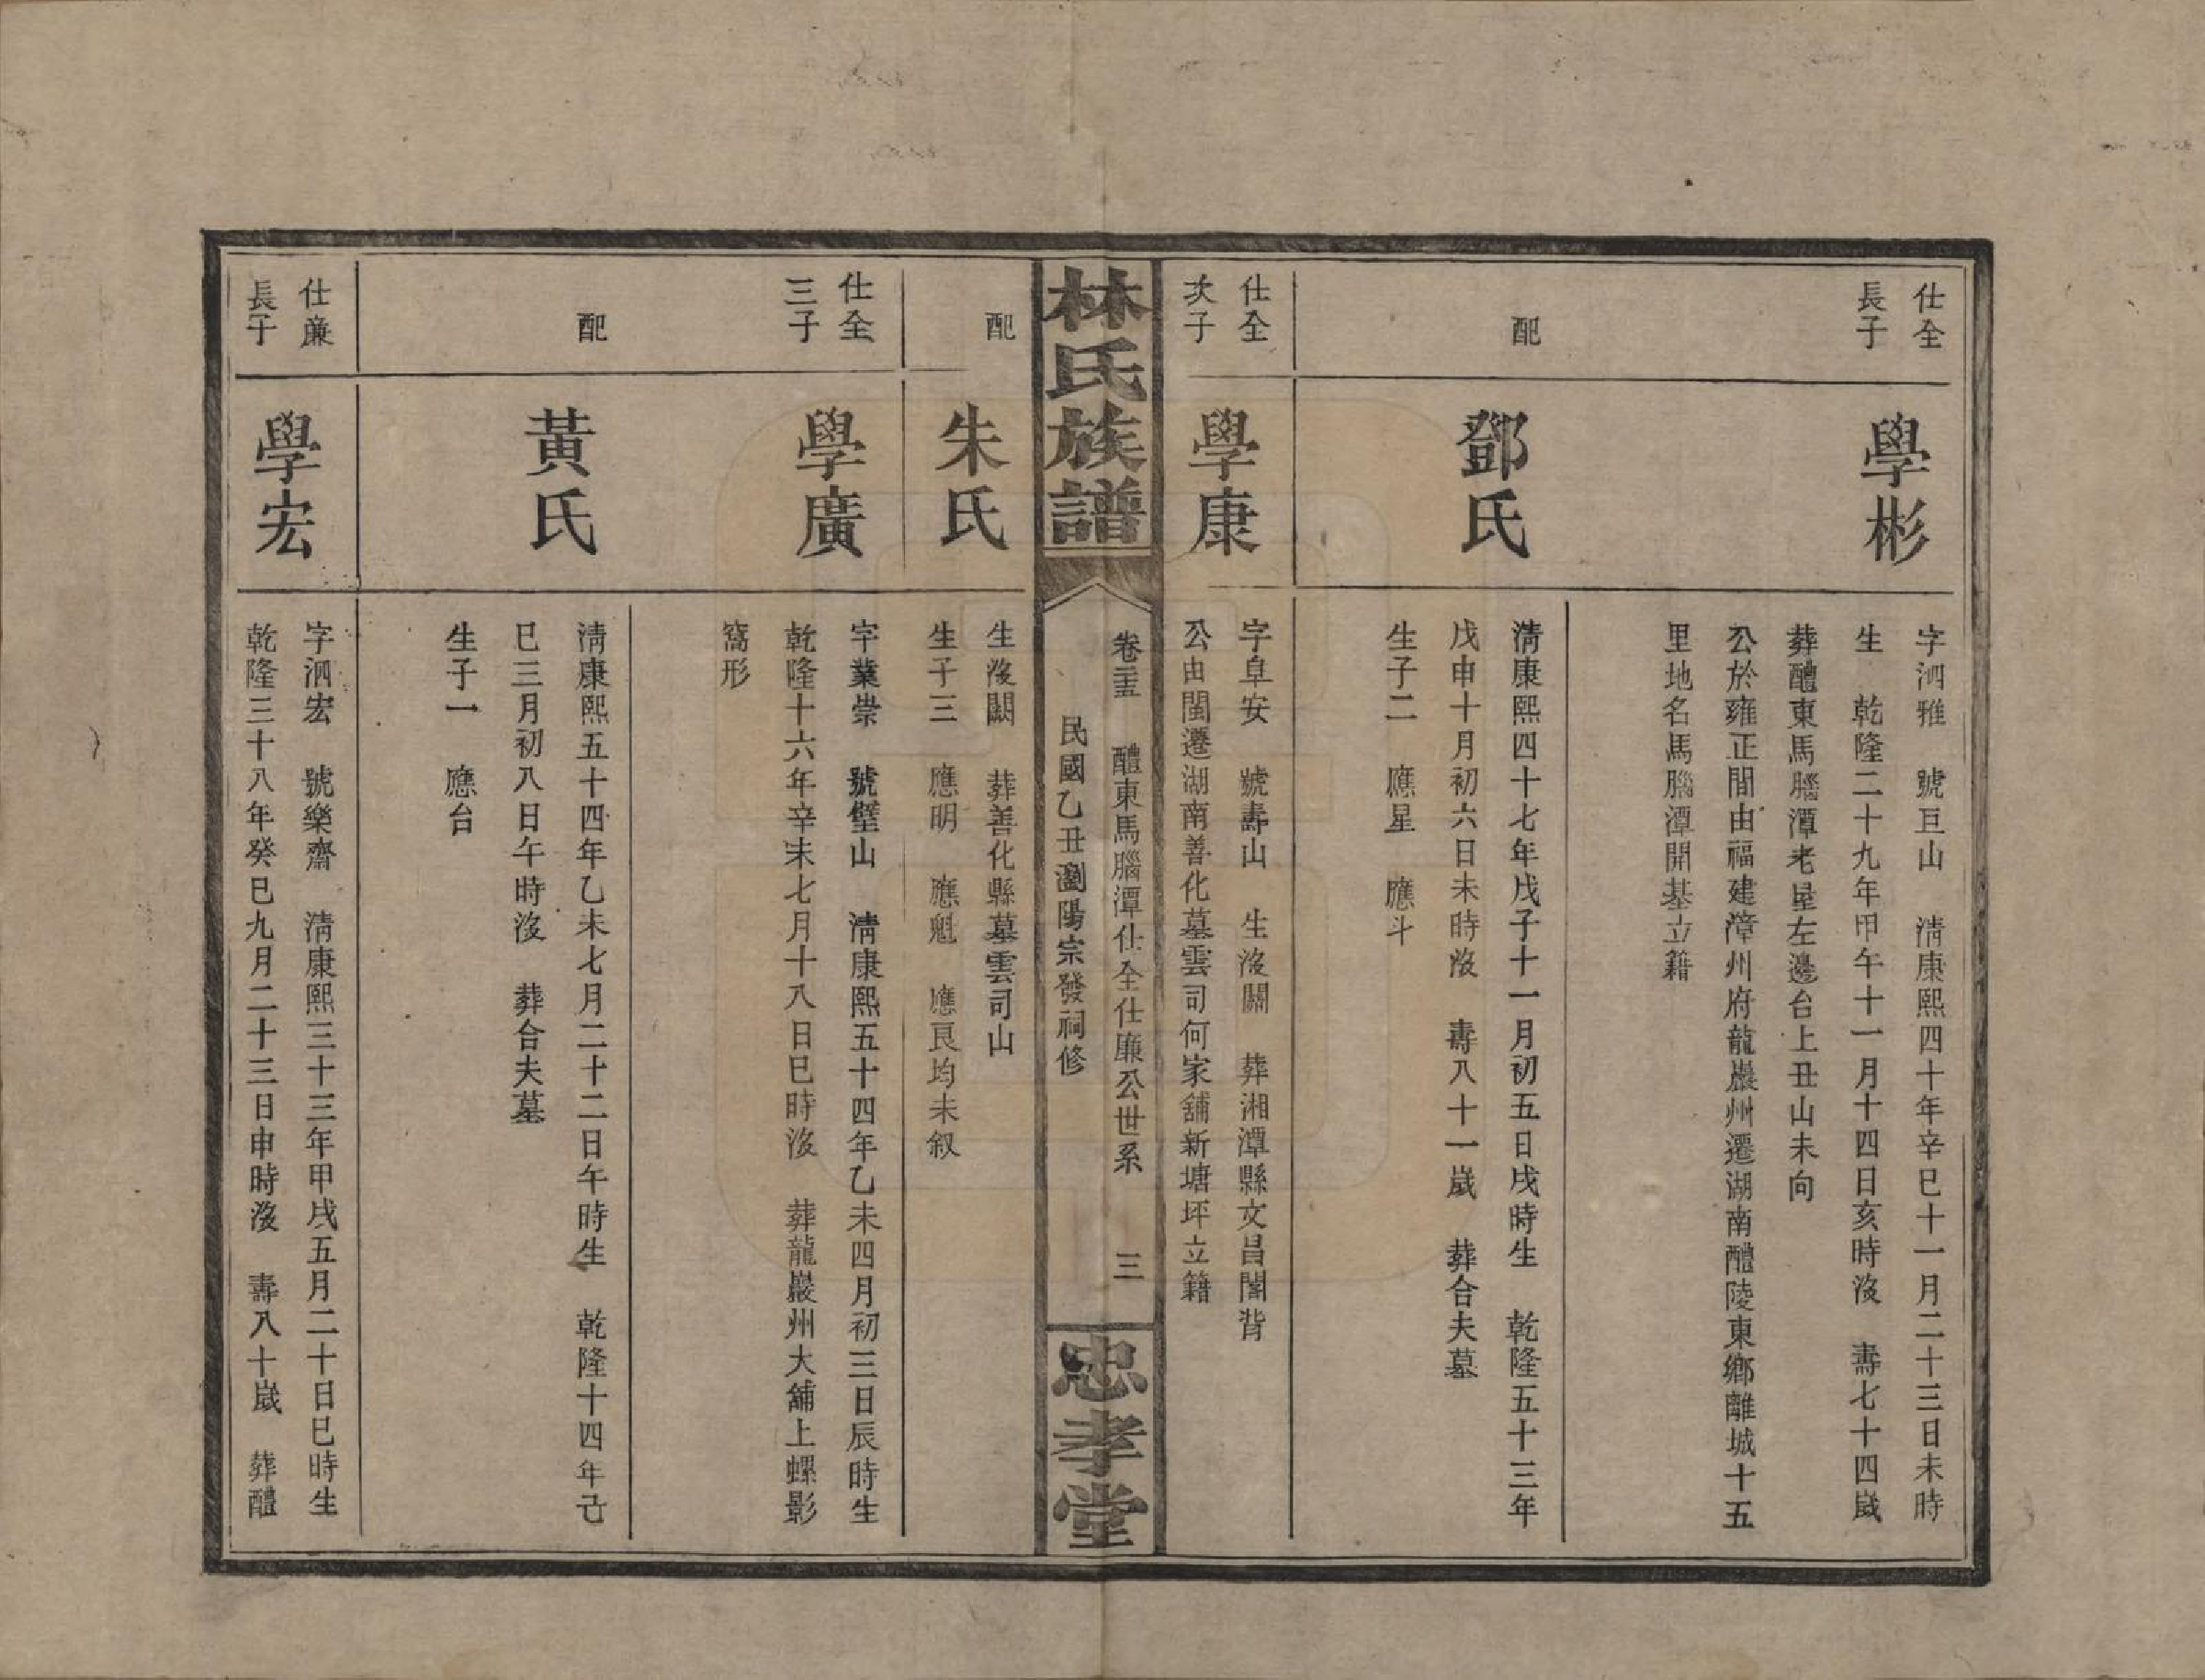 仕全
長子
學彬
字泗雅　號巨山　清康熙四十年辛巳十一月二十三日未時
生　乾隆二十九年甲午十一月十四日亥時沒　壽七十四歲
葬醴東馬腦潭老屋左邊台上丑山未向
公於雍正間由福建漳州府龍巖州遷湖南醴陵東鄉離城十五
里地名馬腦潭開基立籍
配
鄧氏
清康熙四十七年戊子十一月初五日戌時生　乾隆五十三年
戊申十月初六日未時沒　壽八十一歲　葬合夫墓
生子二　應星　應斗
仕全
次子
學康
字阜安　號壽山　生沒闕　葬湘潭縣文昌閣背
公由閩遷湖南善化墓雲司何家舖新塘坪立籍
林氏族譜
卷三十五　醴東馬腦潭仕全仕廉公世系　三
民國乙丑瀏陽宗發祠修
忠孝堂
配
朱氏
生沒闕　葬善化縣墓雲司山
生子三　應明　應魁　應艮均未叙
仕全
三子
學廣
字業崇　號璧山　清康熙五十四年乙未四月初三日辰時生
乾隆十六年辛未七月十八日巳時沒　葬龍巖州大舖上螺影
窩形
配
黃氏
清康熙五十四年乙未七月二十二日午時生　乾隆十四年己
巳三月初八日午時沒　葬合夫墓
生子一　應台
仕廉
長子
學宏
字泗宏　號樂齋　清康熙三十三年甲戌五月二十日巳時生
乾隆三十八年癸巳九月二十三日申時沒　壽八十歲　葬醴